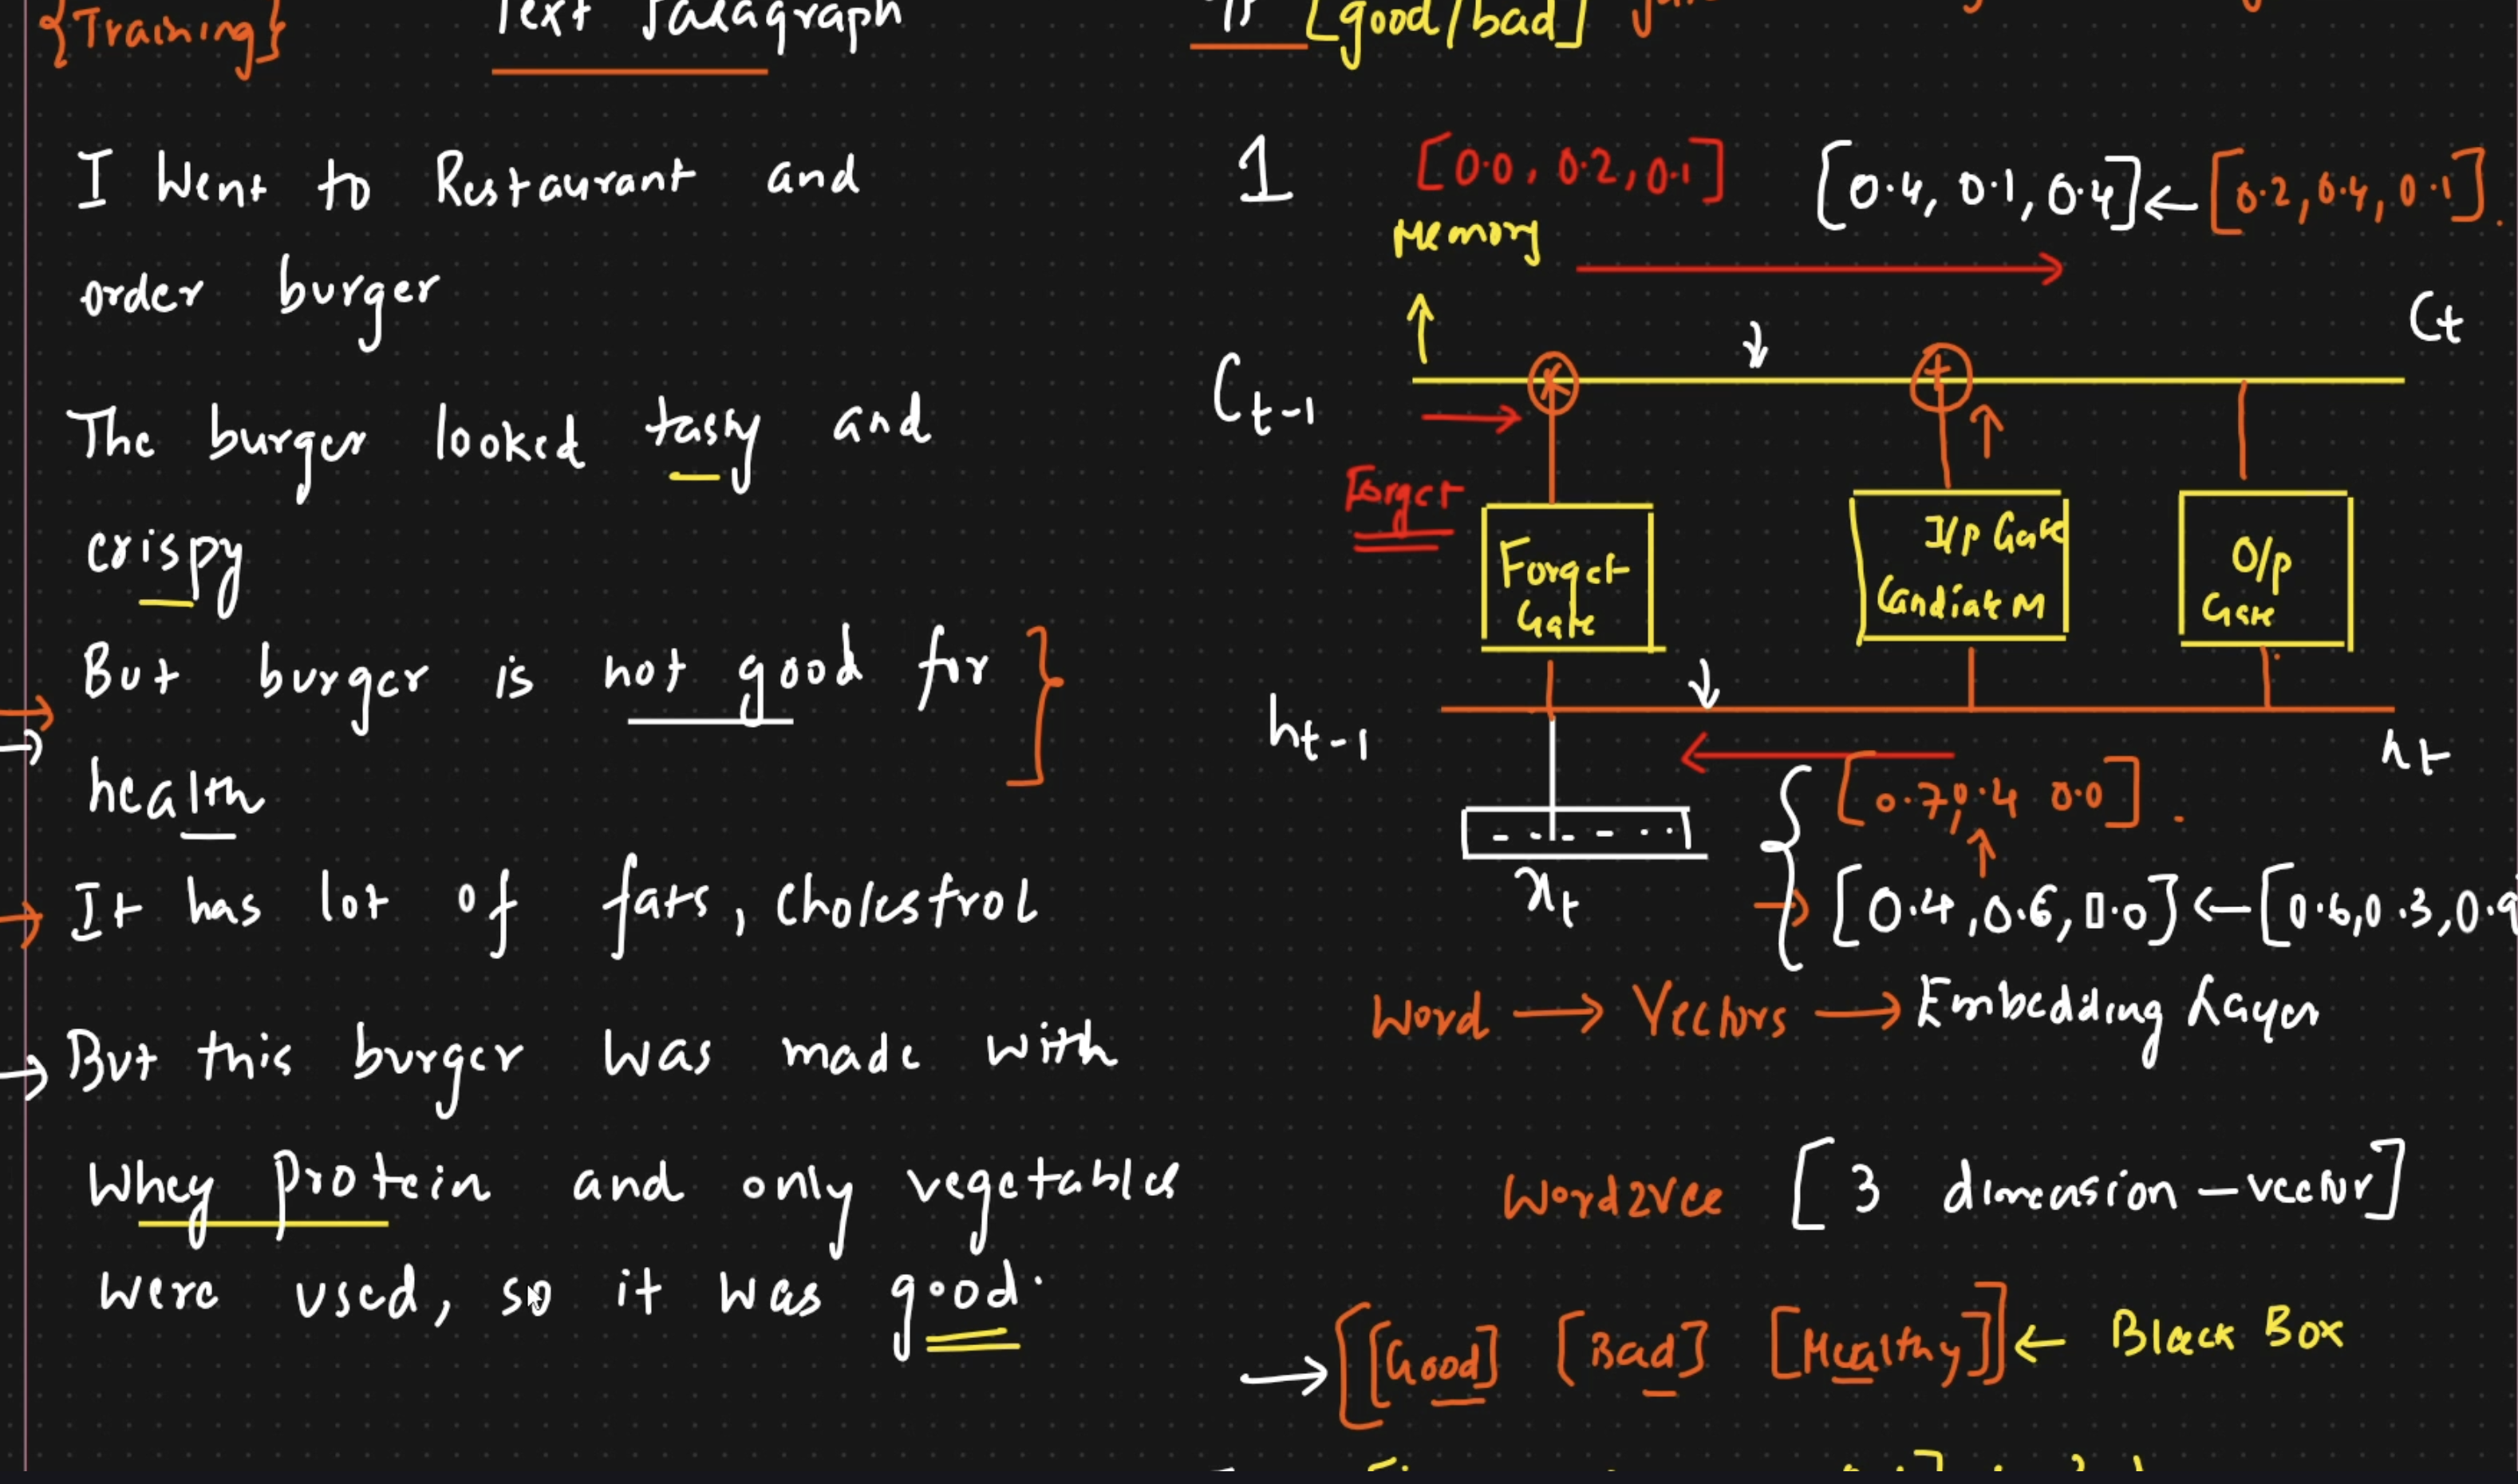 {Training}
Text Paragraph
[good/bad]
I Went to Restaurant and
order burger
The burger looked tasty and
crispy
But burger is not good for
health
It has lot of fats, Cholestrol
But this burger was made with
Whey protein and only vegetables
were used, so it was good.
1
[0.0, 0.2, 0.1]
[0.4, 0.1, 0.4] ← [0.2, 0.4, 0.1].
Memory
Ct
Ct-1
Forget
Forget
Gate
I/p Gate
Candiate M
O/p
Gate
ht-1
ht
[0.7, 0.4 0.0]
xt
→ [0.4, 0.6, 0.0] ← [0.6, 0.3, 0.9
Word → Vectors → Embedding Layer
Word2vec [3 dimension - vector]
→ [[Good] [Bad] [Healthy]] ← Black Box